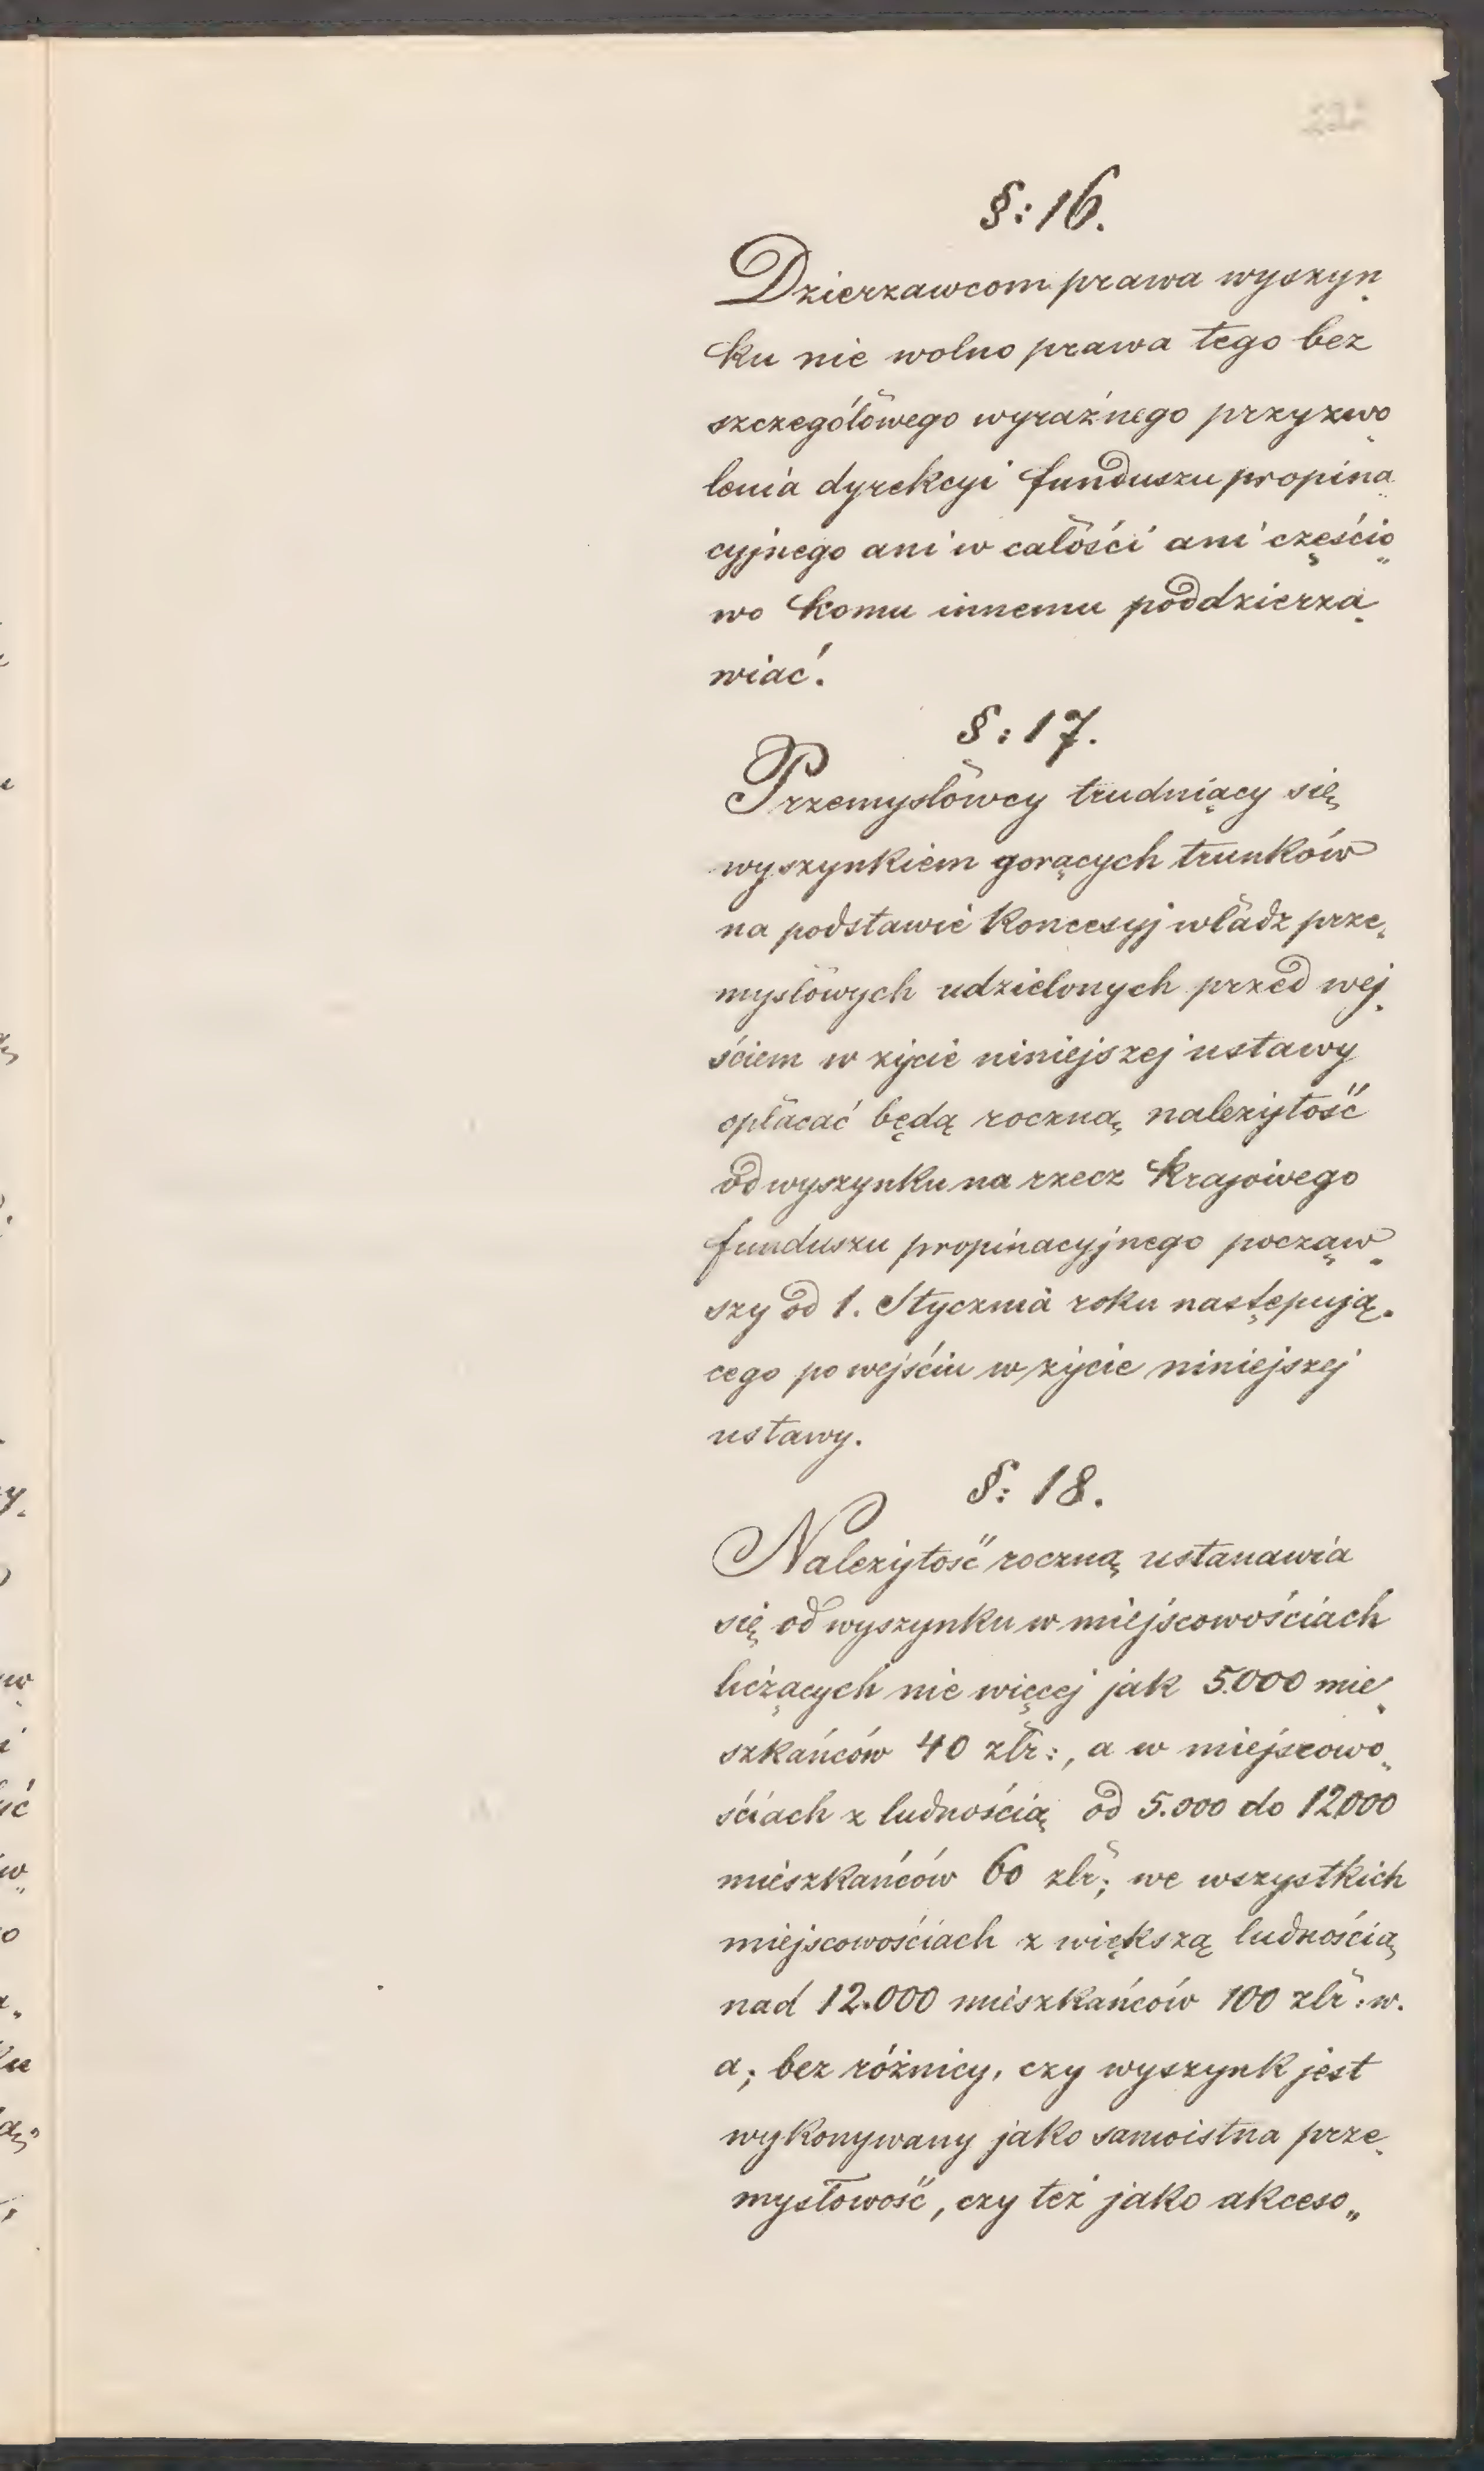 §: 16.
Dzierzawcom prawa wyszyn„
ku nie wolno prawa tego bez
szczegółowego wyraźnego przyzwo„
lenia dyrekcyi funduszu propina„
cyjnego ani w całości ani częścio„
wo komu innemu poddzierza„
wiać.
§: 17.
Przemysłowcy trudniący się
wyszynkiem gorących trunków
na podstawie koncesyj władz prze„
mysłowych udzielonych przed wej„
ściem w życie niniejszej ustawy
opłacać będą roczną należytość
od wyszynku na rzecz krajowego
funduszu propinacyjnego począw„
szy od 1. Stycznia roku następują„
cego po wejściu w życie niniejszej
ustawy.
§: 18.
Należytość roczną ustanawia
się od wyszynku w miejscowościach
liczących nie więcej jak 5.000 mie„
szkańców 40 złr:, a w miejscowo„
ściach z ludnością od 5.000 do 12.000
mieszkańców 60 złr; we wszystkich
miejscowościach z większą ludnością
nad 12.000 mieszkańców 100 złr: w.
a; bez różnicy, czy wyszynk jest
wykonywany jako samoistna prze„
mysłowość, czy też jako akceso„